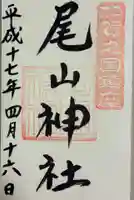 尾山神社
平成十七年四月十六日